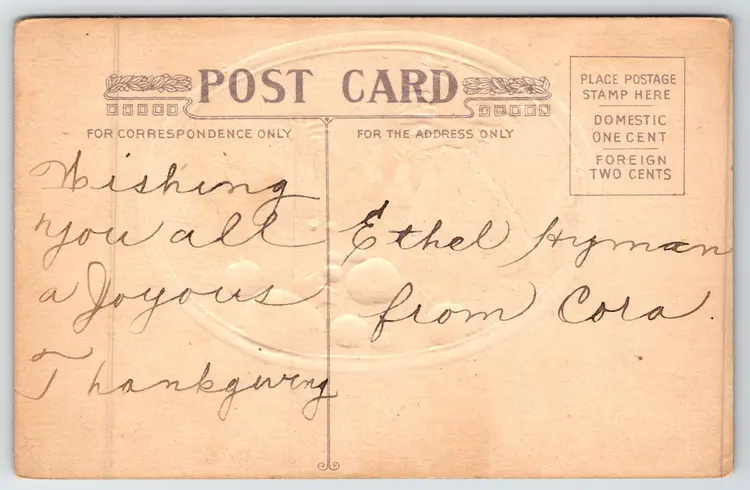 POST CARD
FOR CORRESPONDENCE ONLY
FOR THE ADDRESS ONLY
PLACE POSTAGE
STAMP HERE
DOMESTIC
ONE CENT
FOREIGN
TWO CENTS
Wishing
you all
a Joyous
Thankgiving
Ethel Hyman
from Cora.